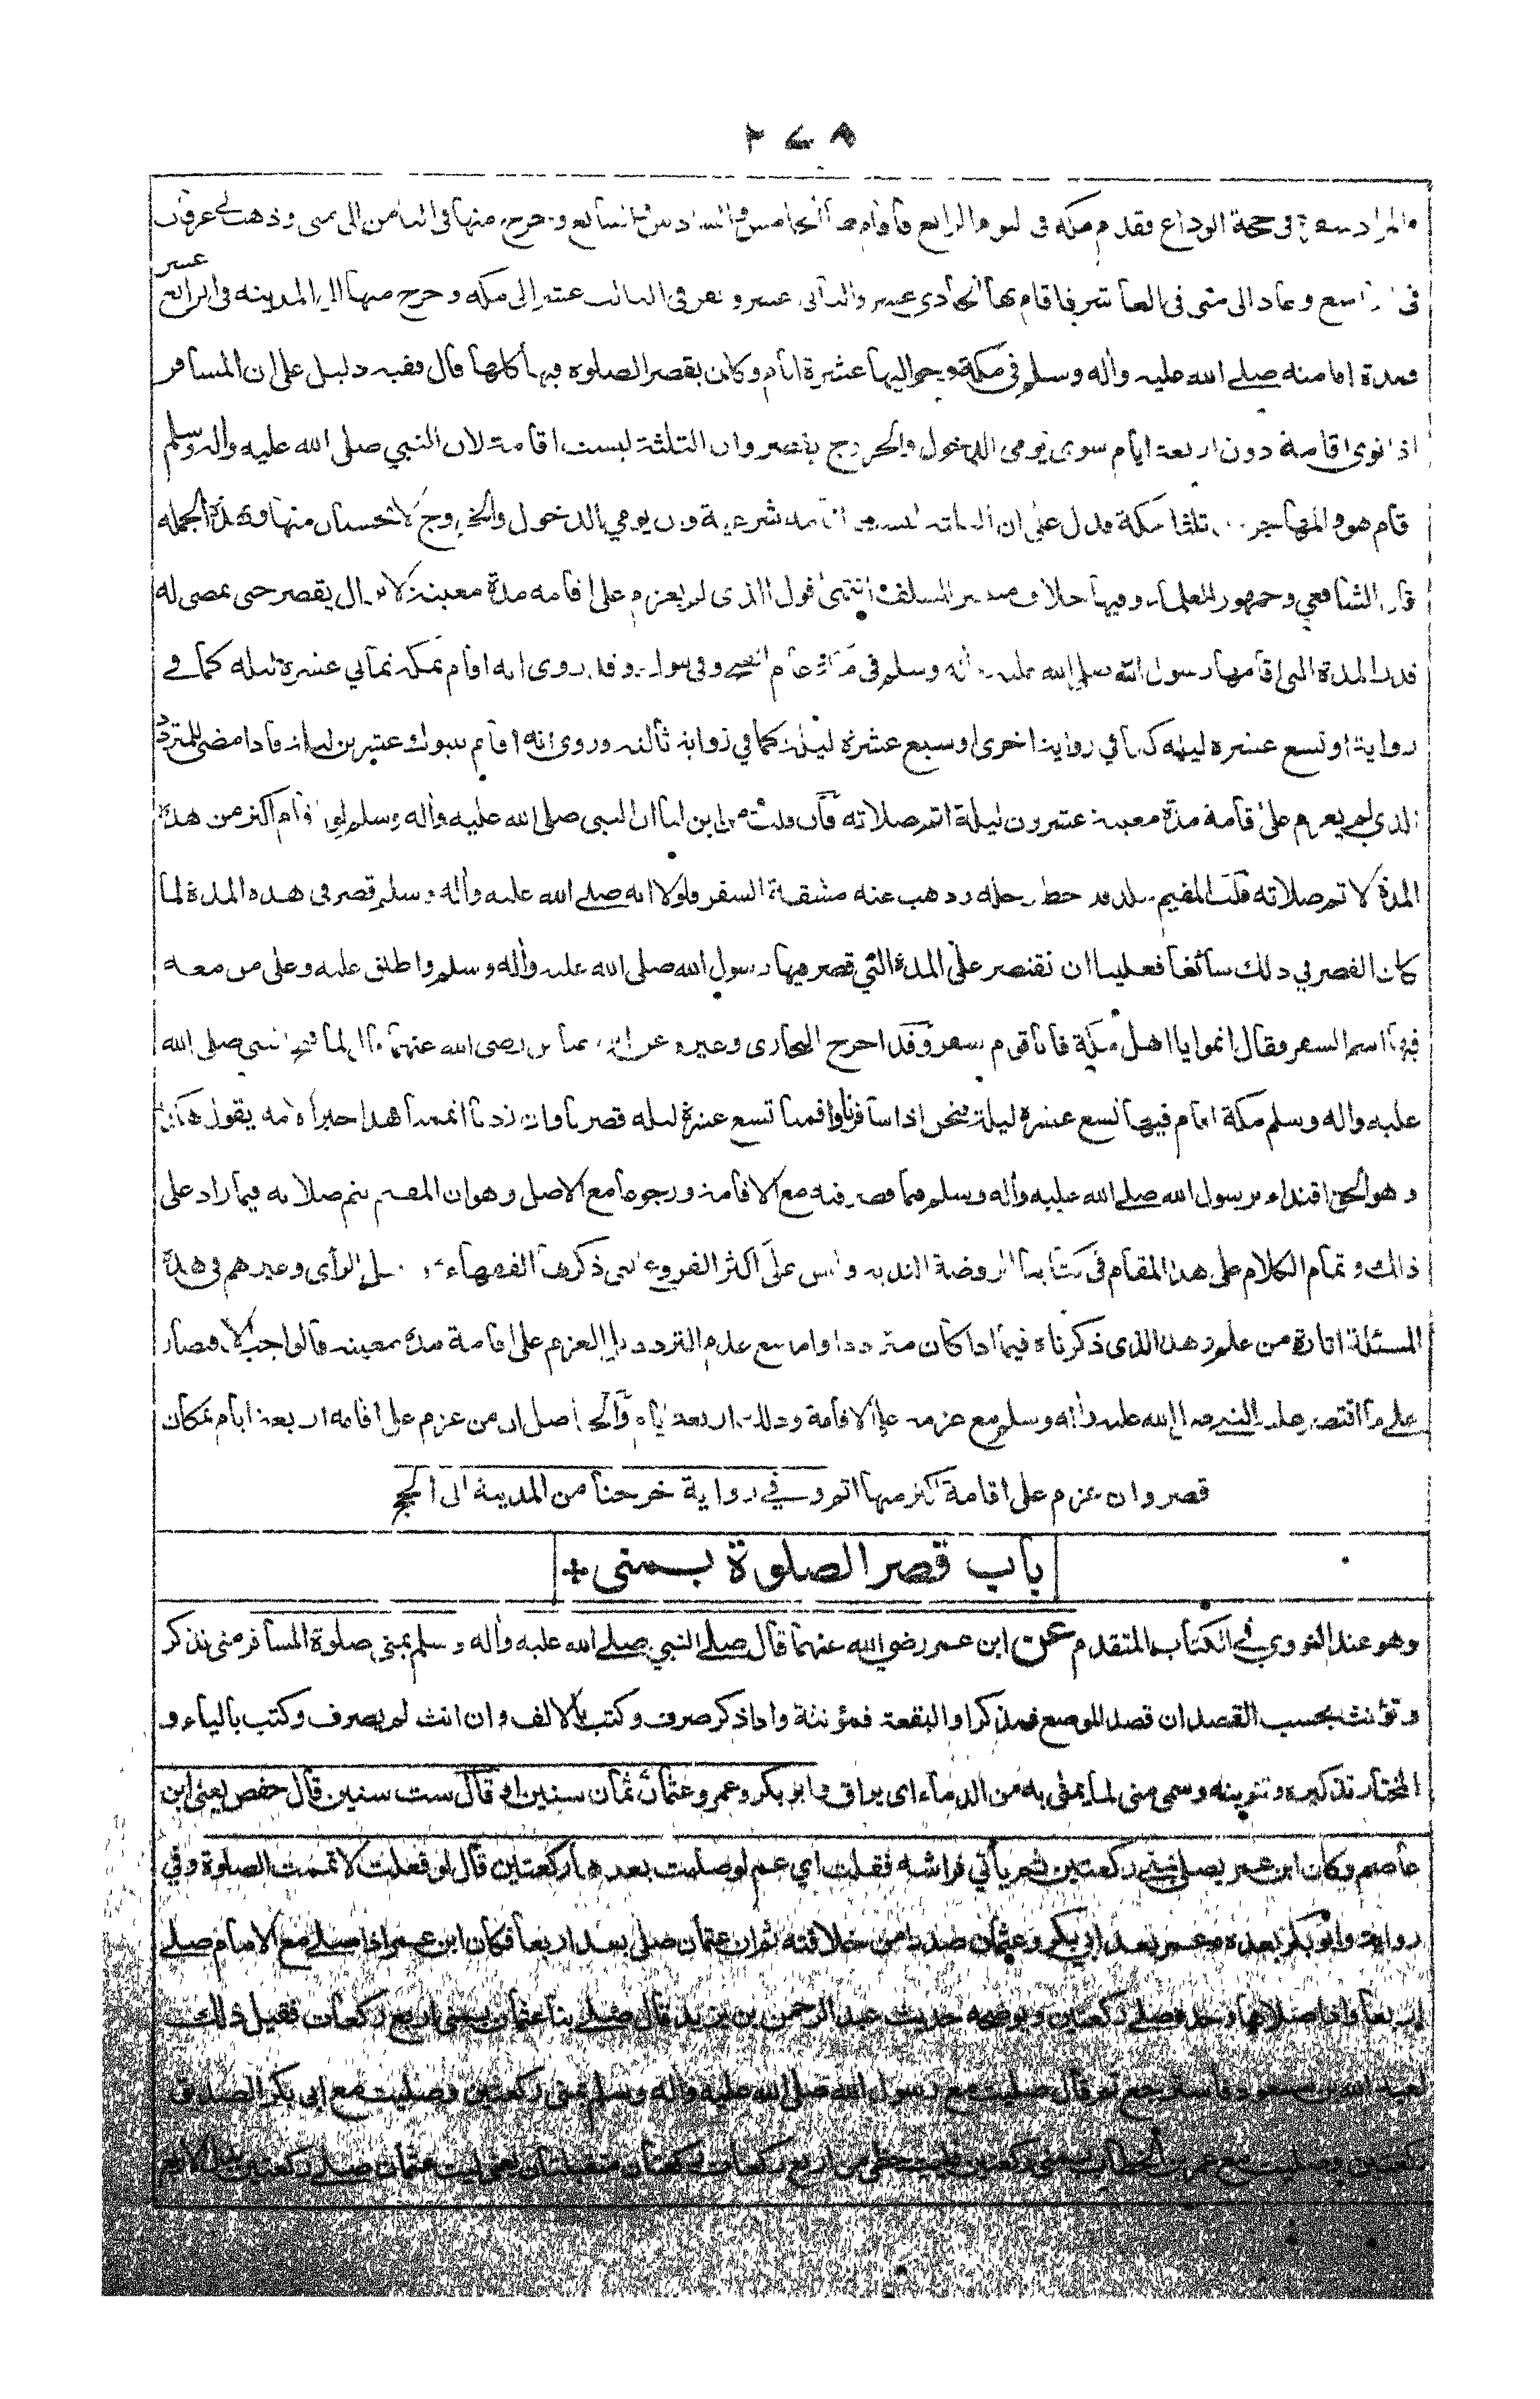 ٢٧٨
المراد سفره في حجة الوداع فقدم مكة في اليوم الرابع فأقام بها الخامس والسادس والسابع وخرج منها في الثامن الى منى وذهب الى عرفات
في التاسع وعاد الى منى في العاشر فاقام بها الحادي عشر والثاني عشر ونفر في الثالث عشر الى مكة وخرج منها الى المدينة في الرابع عشر
فمدة اقامته صلے الله عليه وأله وسلم في مكة وحواليها عشرة ايام وكان يقصر الصلوة فيها كلها قال وفيه دليل على ان المسافر
اذا نوى اقامة دون اربعة ايام سوى يومي الدخول والخروج يقصر وان الثلثة ليست اقامة لان النبي صلى الله عليه وأله وسلم
قام هو والمهاجر تلثا بمكة فدل على ان الثلثة ليست اقامة شرعية وان يومي الدخول والخروج لا تحسبان منها وبهذه الجملة
قال الشافعي وجمهور العلماء وفيها خلاف السلف انتهى اقول الذى لم يعزم على اقامة مدة معينة لا يزال يقصر حتى يمضى له
قدر المدة التى اقامها رسول الله صلى الله عليه وأله وسلم في مكة عام الفتح وفي تبوك وقد روى انه اقام بمكة ثماني عشرة ليلة كما في
رواية او تسع عشرة ليلة كما في رواية اخرى او سبع عشرة ليلة كما في رواية ثالثة وروى انه اقام بتبوك عشرين ليلة فاذا مضى للمتردد
الذي لم يعزم على اقامة مدة معينة عشرون ليلة اتم صلاته فان قلت من اين لنا ان النبي صلى الله عليه وأله وسلم لو اقام اكثر من هذه
المدة لا تم صلاته قلت المقيم ببلد قد حط رحله وذهب عنه مشقة السفر فلولا انه صلے الله عليه وأله وسلم قصر في هذه المدة لما
كان القصر في ذلك سائغا فعلينا ان نقتصر على المدة التي قصر فيها رسول الله صلى الله عليه وأله وسلم واطلق عليه وعلى من معه
فيها اسم السفر فقال اتموا يا اهل مكة فانا قوم سفر وقد اخرج البخارى وغيره عن ابن عباس رضى الله عنهما قال لما فتح النبى صلى الله
عليه وأله وسلم مكة اقام فيها تسع عشرة ليلة فنحن اذا سافرنا واقمنا تسع عشرة ليلة قصرنا وان زدنا اتممنا هذا حبر الامة يقول هكذا
وهو الحق اقتداء برسول الله صلے الله عليه وأله وسلم فيما قصر فيه مع الاقامة ورجوعا مع الاصل وهو ان المقيم يتم صلاته فيما زاد على
ذلك وتمام الكلام على هذا المقام في كتابنا الروضة الندية وليس على اكثر الفروع التى ذكرها الفقهاء من اهل الرأى وغيرهم في هذه
المسئلة اثارة من علم وهذا الذى ذكرناه فيما اذا كان مترددا واما مع عدم التردد بل العزم على اقامة مدة معينة فالواجب الاقتصار
على ما اقتصر عليه النبي صلى الله عليه وأله وسلم مع عزمه على الاقامة وذلك اربعة ايام والحاصل ان من عزم على اقامة اربعة ايام بمكان
قصر وان عزم على اقامة اكثر منها اتم وفي رواية خرجنا من المدينة الى الحج
باب قصر الصلوة بمنى +
وهو عند النووي في الكتاب المتقدم عن ابن عمر رضي الله عنهما قال صلے النبي صلے الله عليه وأله وسلم بمنى صلوة المسافر منى تذكر
وتؤنث بحسب القصد ان قصد الموضع فمذكر او البقعة فمؤنثة واذا ذكر صرف وكتب بالالف وان انث لم يصرف وكتب بالياء و
المختار تذكيره وتنوينه وسمى منى لما يمنى به من الدماء اى يراق وابو بكر وعمر وعثمان ثمان سنين او قال ست سنين قال حفص يعنى ابن
عاصم وكان ابن عمر يصلى بمنى ركعتين ثم يأتي فراشه فقلت اي عم لو صليت بعدها ركعتين قال لو فعلت لاتممت الصلوة وفي
رواية وابو بكر بعده وعمر بعد ابي بكر وعثمان صدرا من خلافته ثم ان عثمان صلى بعد اربعا فكان ابن عمر اذا صلے مع الامام صلے
اربعا واذا صلاها وحده صلے ركعتين ويوضحه حديث عبد الرحمن بن يزيد قال صلے بنا عثمان بمنى اربع ركعات فقيل ذلك
لعبد الله بن مسعود فاسترجع ثم قال صليت مع رسول الله صلى الله عليه وأله وسلم بمنى ركعتين وصليت مع ابى بكر الصديق
ركعتين وصليت مع عمر بن الخطاب بمنى ركعتين فليت حظى من اربع ركعات ركعتان متقبلتان يعنى ليت عثمان صلے ركعتين بدل الاربع